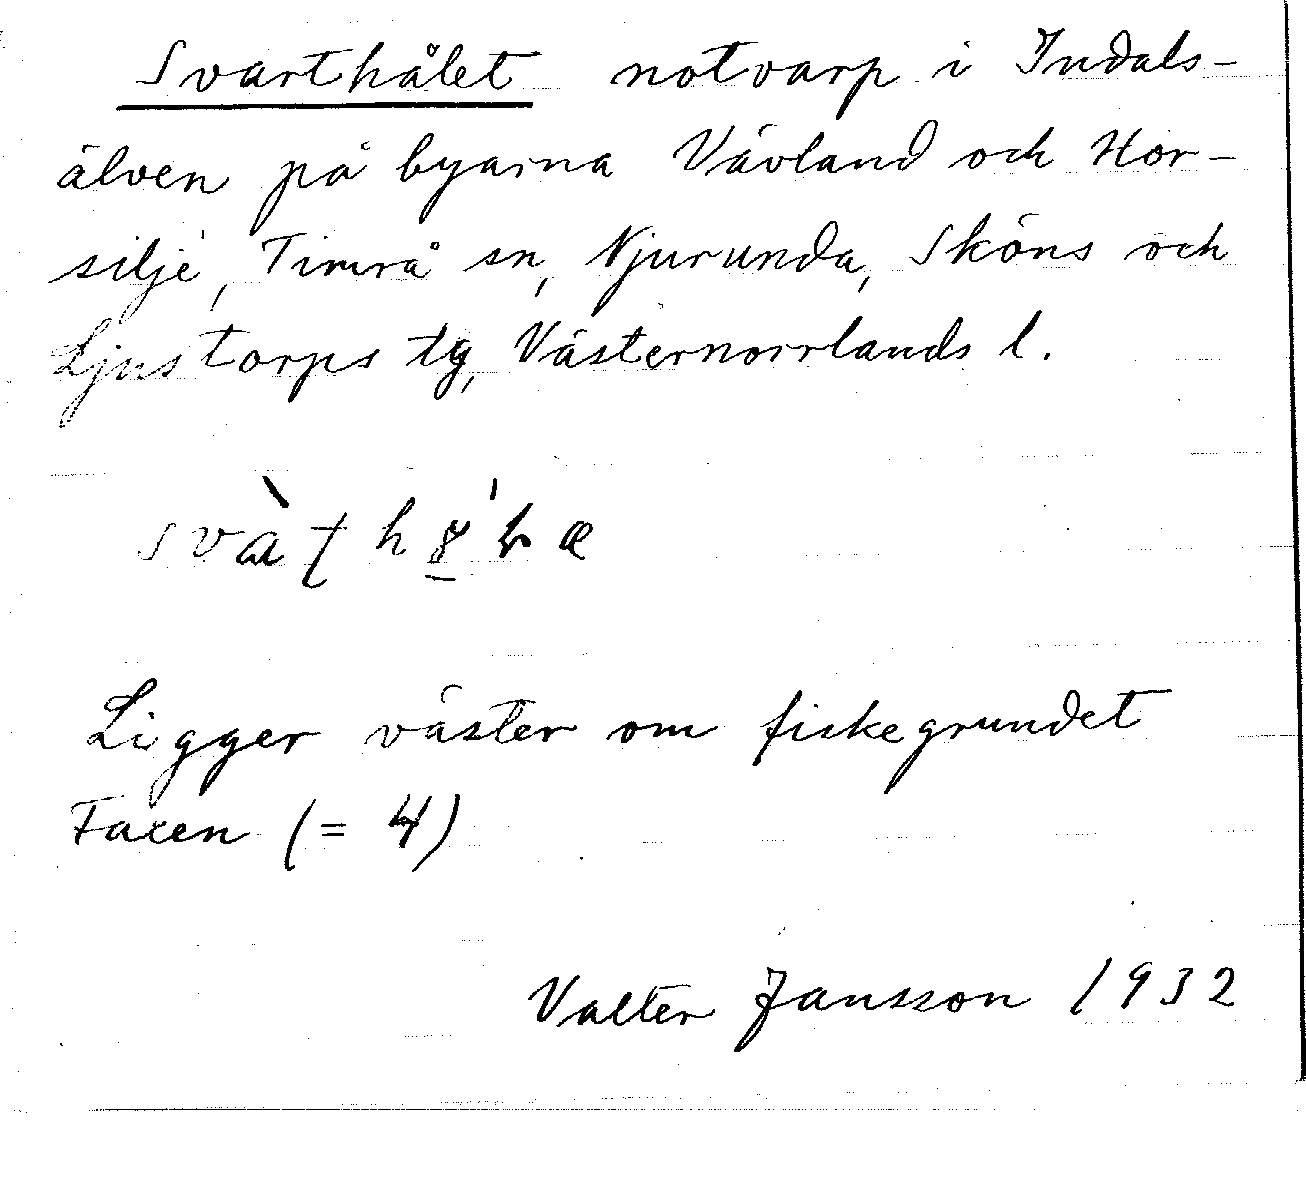 Svarthålet notvarp i Indals-
älven på byarna Vävland och Hor-
silje, Timrå sn, Njurunda, Sköns och
Ljustorps tg, Västernorrlands l.
Ligger väster om fiskegrundet
Faxen (= 4)
Valter Jansson 1932